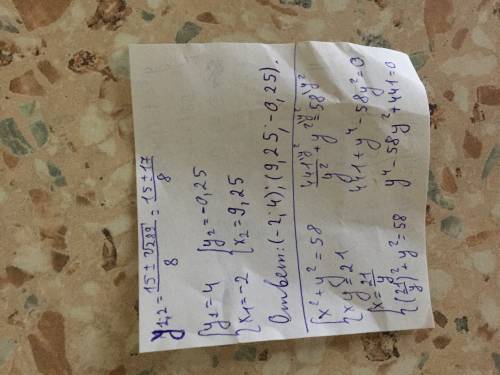 y₁,₂ = (15 ± √289)/8 = (15 ± 17)/8
{y₁ = 4 {y₂ = -0,25
{x₁ = -2 {x₂ = 9,25
Ответ: (-2; 4); (9,25; -0,25).
{x² + y² = 58
{xy = 21
{x = 21/y
{(21/y)² + y² = 58
441/y² + y² = 58
441 + y⁴ - 58y² = 0
y⁴ - 58y² + 441 = 0